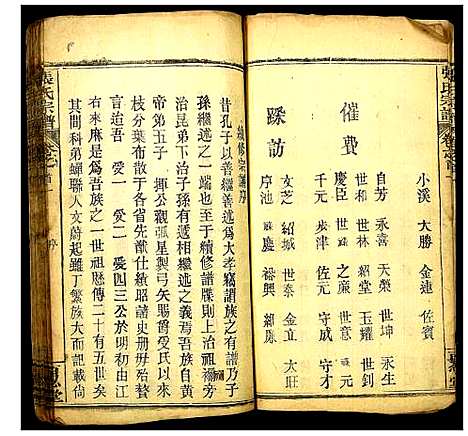 小溪 大勝 金連 佐賓
催費
自芳 永喜 天榮 世坤 永生
世和 世林 紹堂 玉耀 世前
慶臣 世越 之廉 世意
千元 步津 佐元 守成 守才
踩訪
文芝 紹城 世泰 金立 大旺
序池 慶 裕興
張氏宗譜 卷之首
續修宗譜序
昔孔子以善繼善述為大孝竊謂族之有譜乃子
孫繼述之一端也至於續修譜牒則上治祖禰旁
治昆弟下治子孫有遞相繼述之義焉吾族自黃
帝弟五子 揮公觀弧星製弓矢賜爵受氏以來
枝分葉布散于各省先哲仕績昭諸史册毋殆贅
言迨吾 愛一 愛二 愛四三公於明初由江
右來麻是爲吾族之一世祖歷傳二十有五世矣
其間科弟蟬聯人文蔚起雖丁繁族大而記載尚
張氏宗譜 卷之首 序